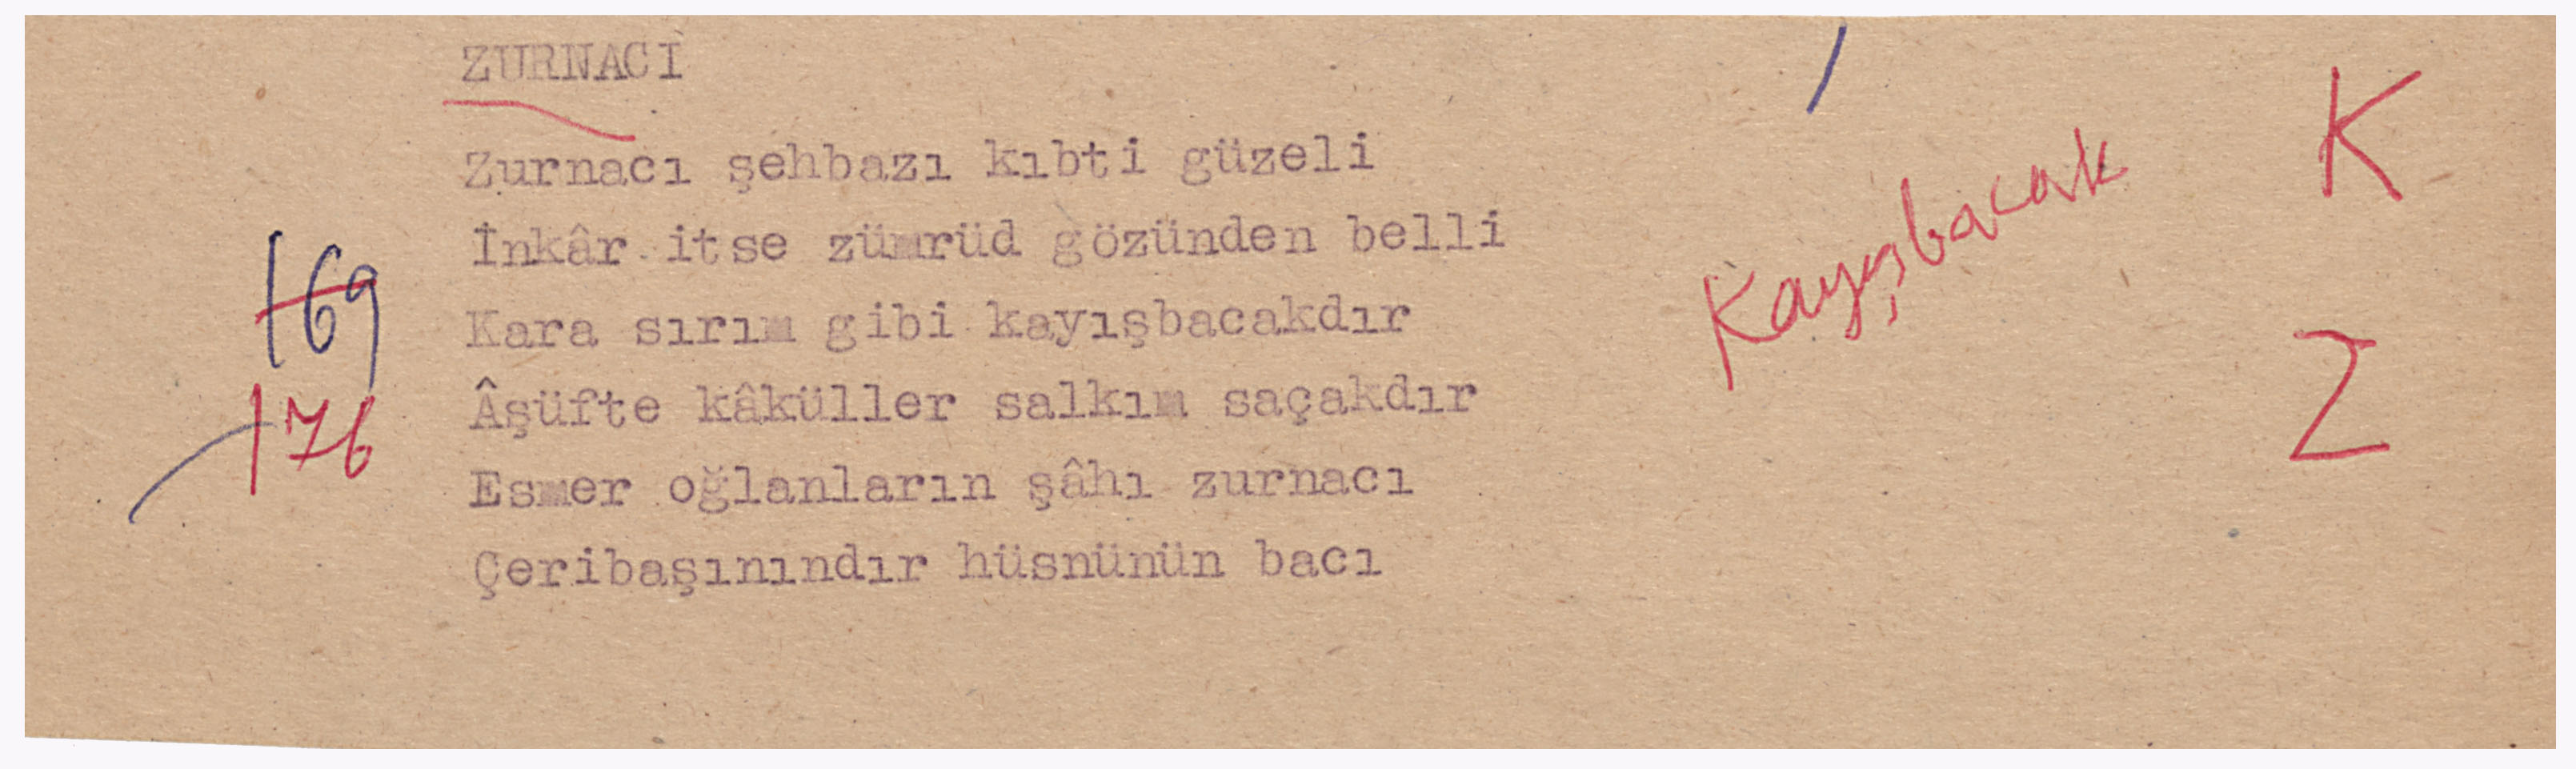 ZURNACI
Zurnacı şehbazı kıbti güzeli
İnkâr itse zümrüd gözünden belli
Kara sırım gibi kayışbacakdır
Âşüfte kâküller salkım saçakdır
Esmer oğlanların şâhı zurnacı
Çeribaşınındır hüsnünün bacı
169
176
Kayışbacak
K
Z